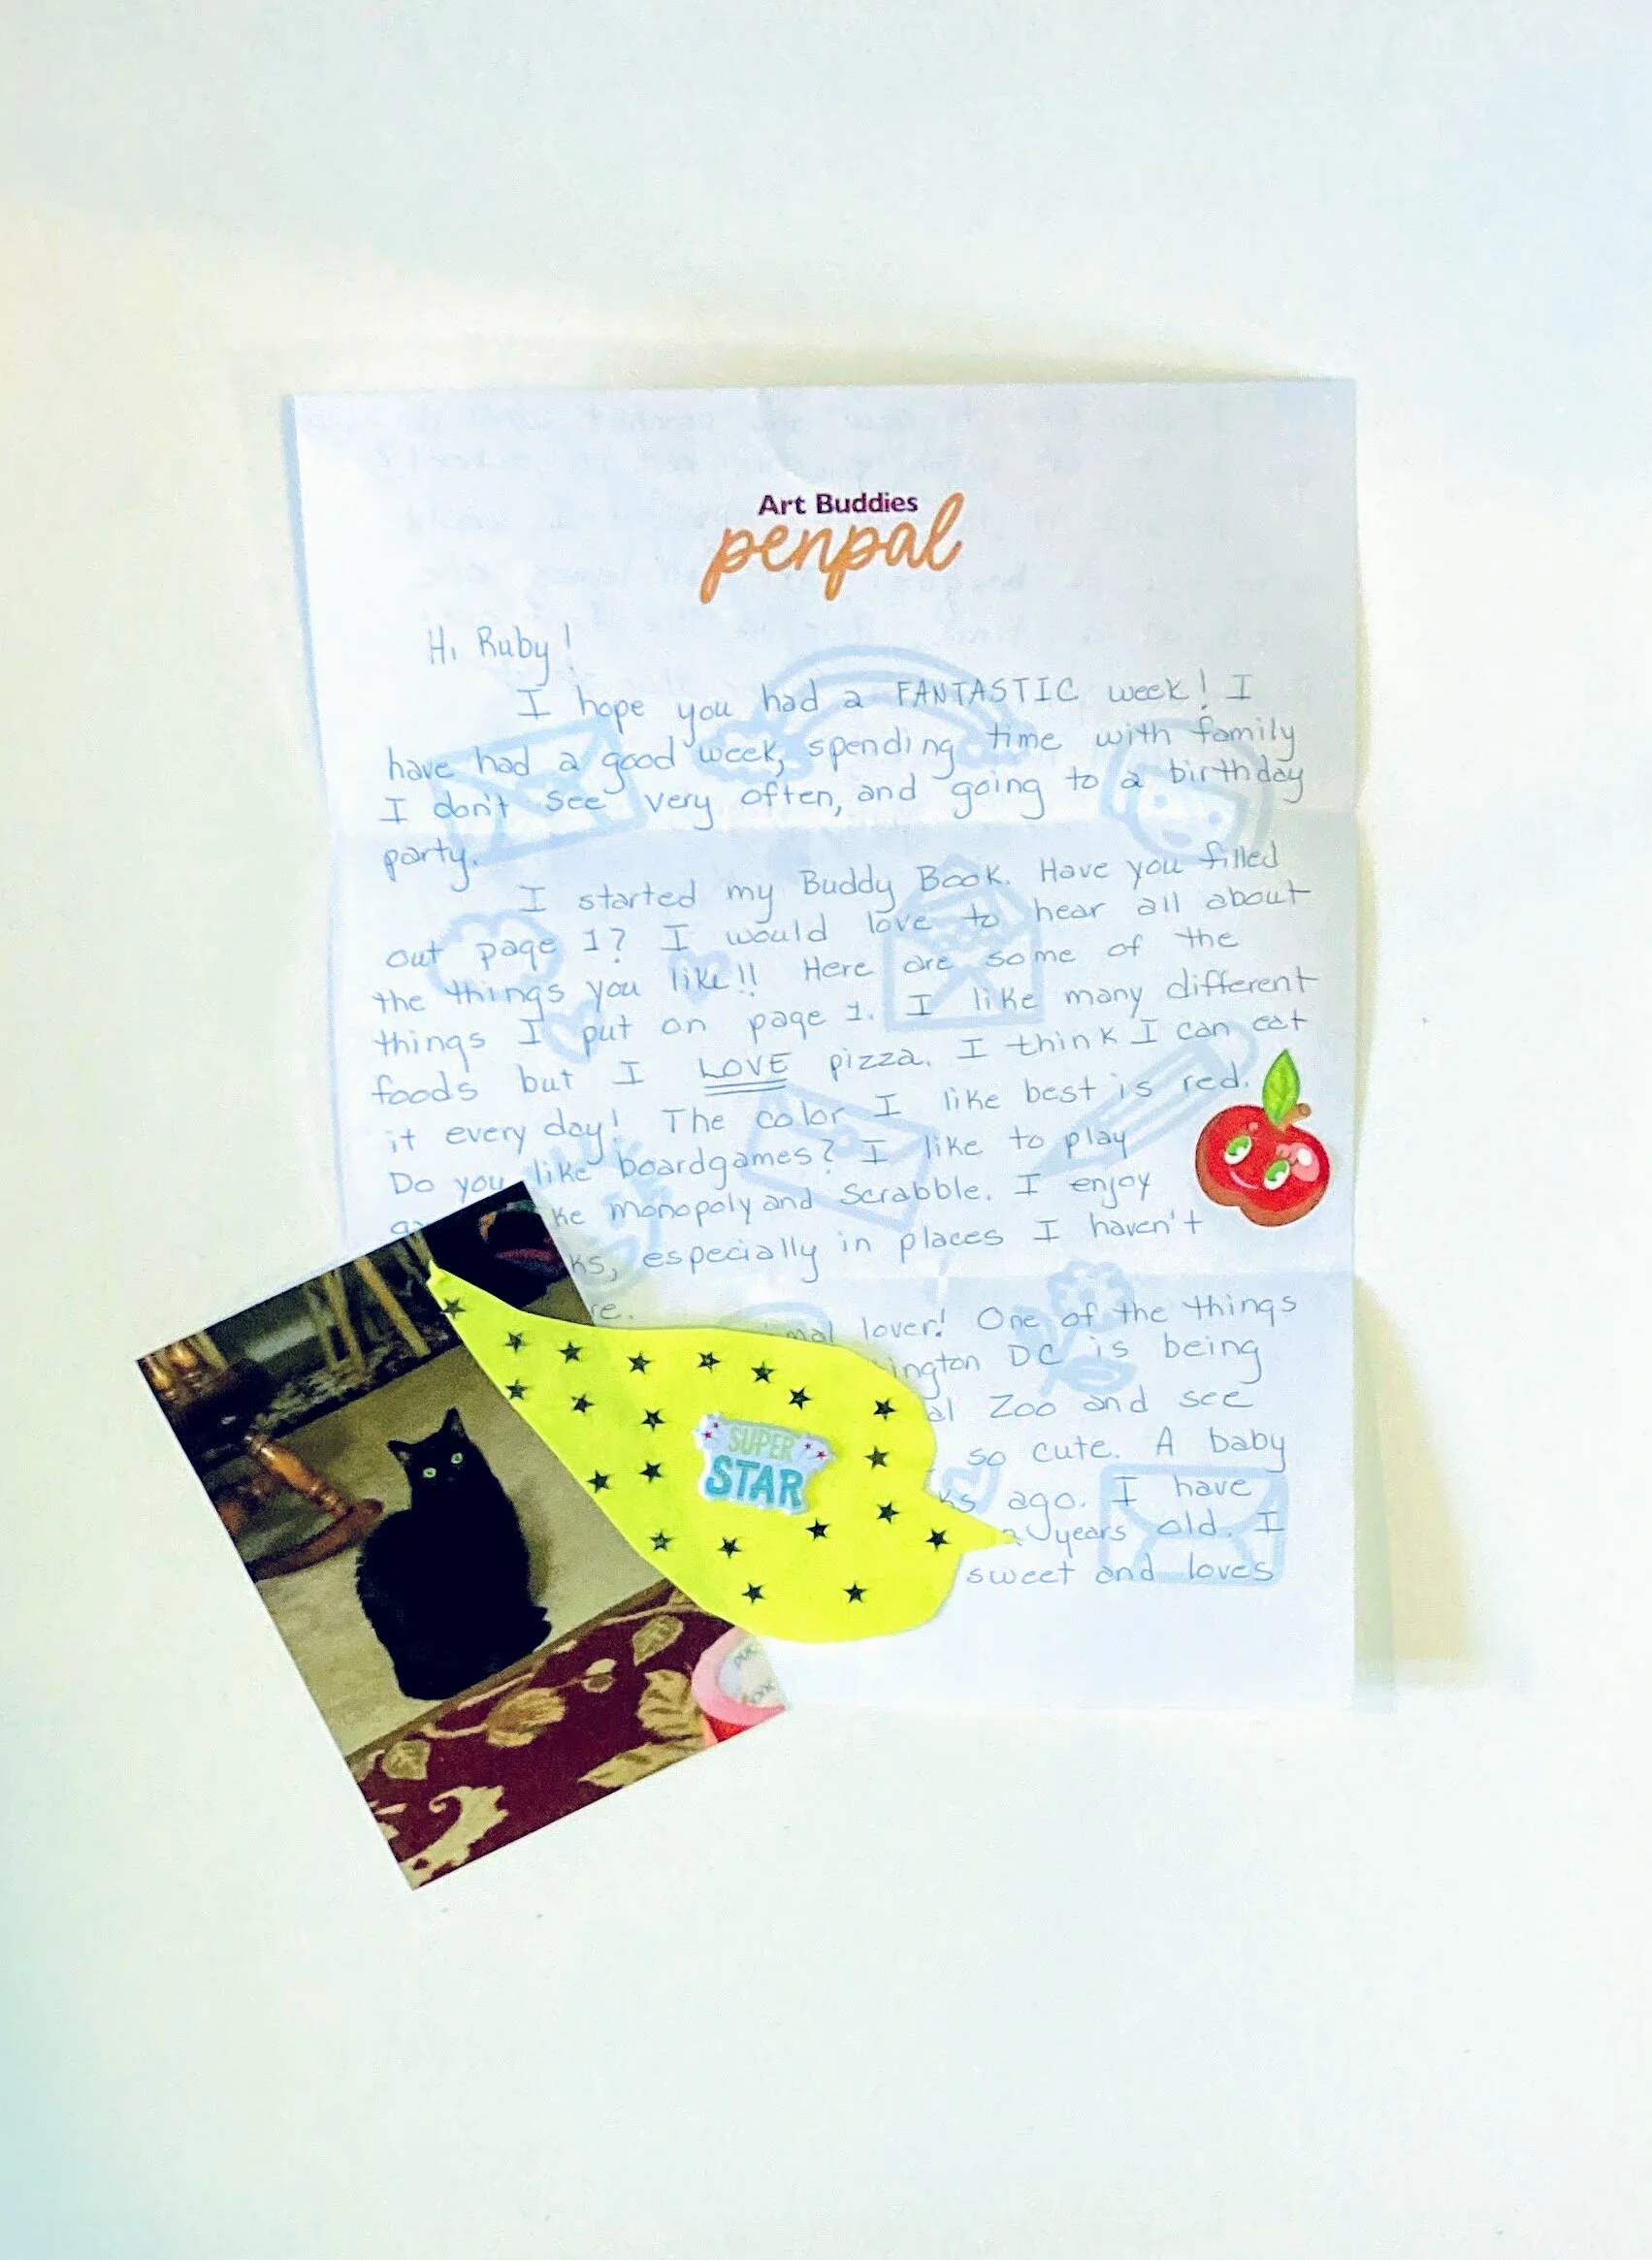 Art Buddies
penpal
Hi Ruby!
I hope you had a FANTASTIC week! I
have had a good week, spending time with family
I don't see very often, and going to a birthday
party.
I started my Buddy Book. Have you filled
out page 1? I would love to hear all about
the things you like!! Here are some of the
things I put on page 1. I like many different
foods but I LOVE pizza. I think I can eat
it every day! The color I like best is red.
Do you like boardgames? I like to play
monopoly and Scrabble. I enjoy
especially in places I haven't
lover! One of the things
DC is being
Zoo and see
so cute. A baby
ago. I have
years old. I
sweet and loves
SUPER
STAR